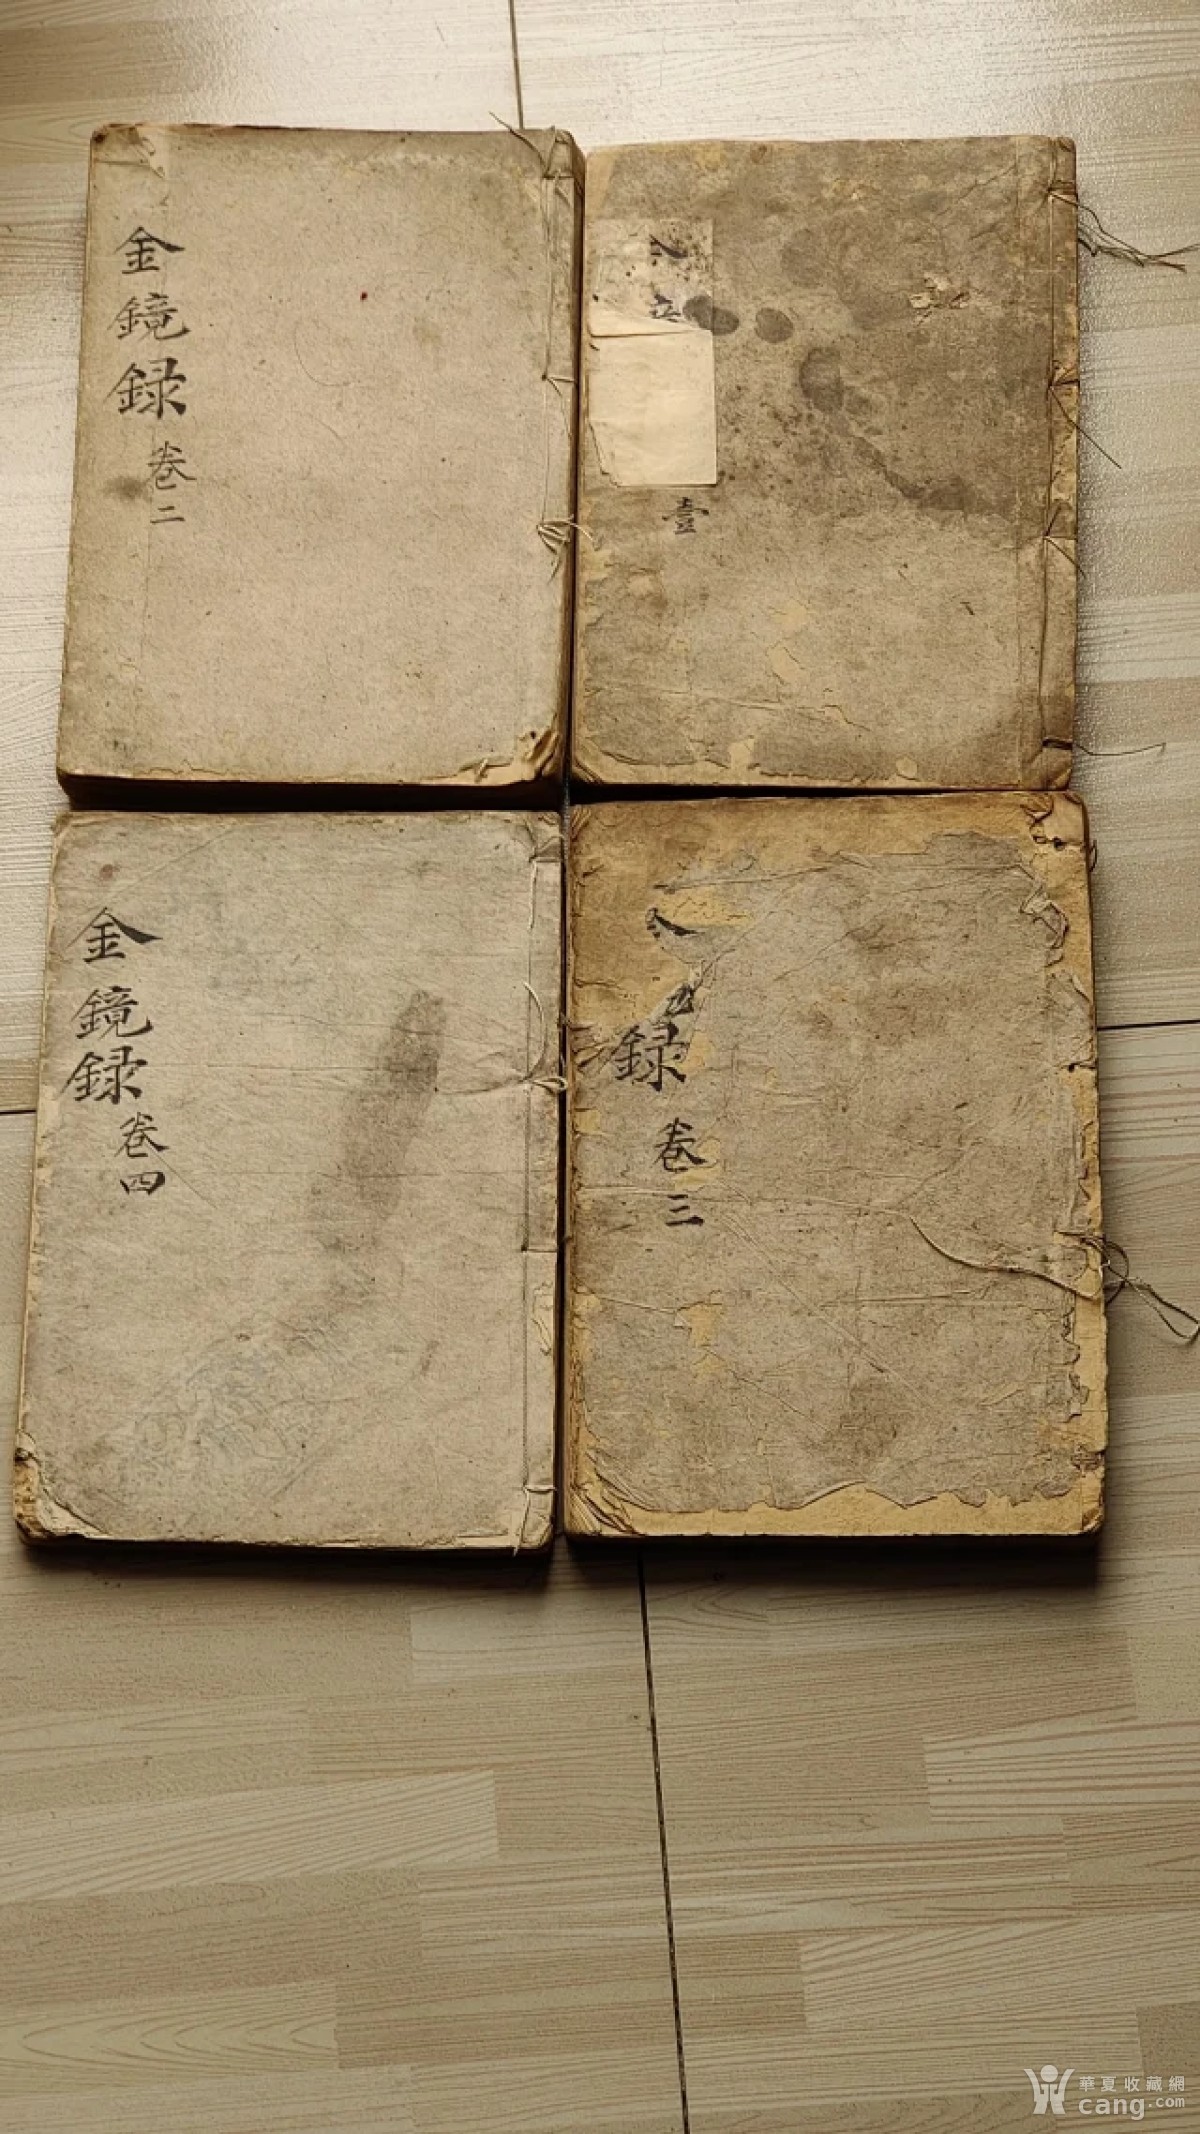 金鏡録
卷二
壹
金鏡録
卷四
録
卷三
華夏收藏網
cang.com